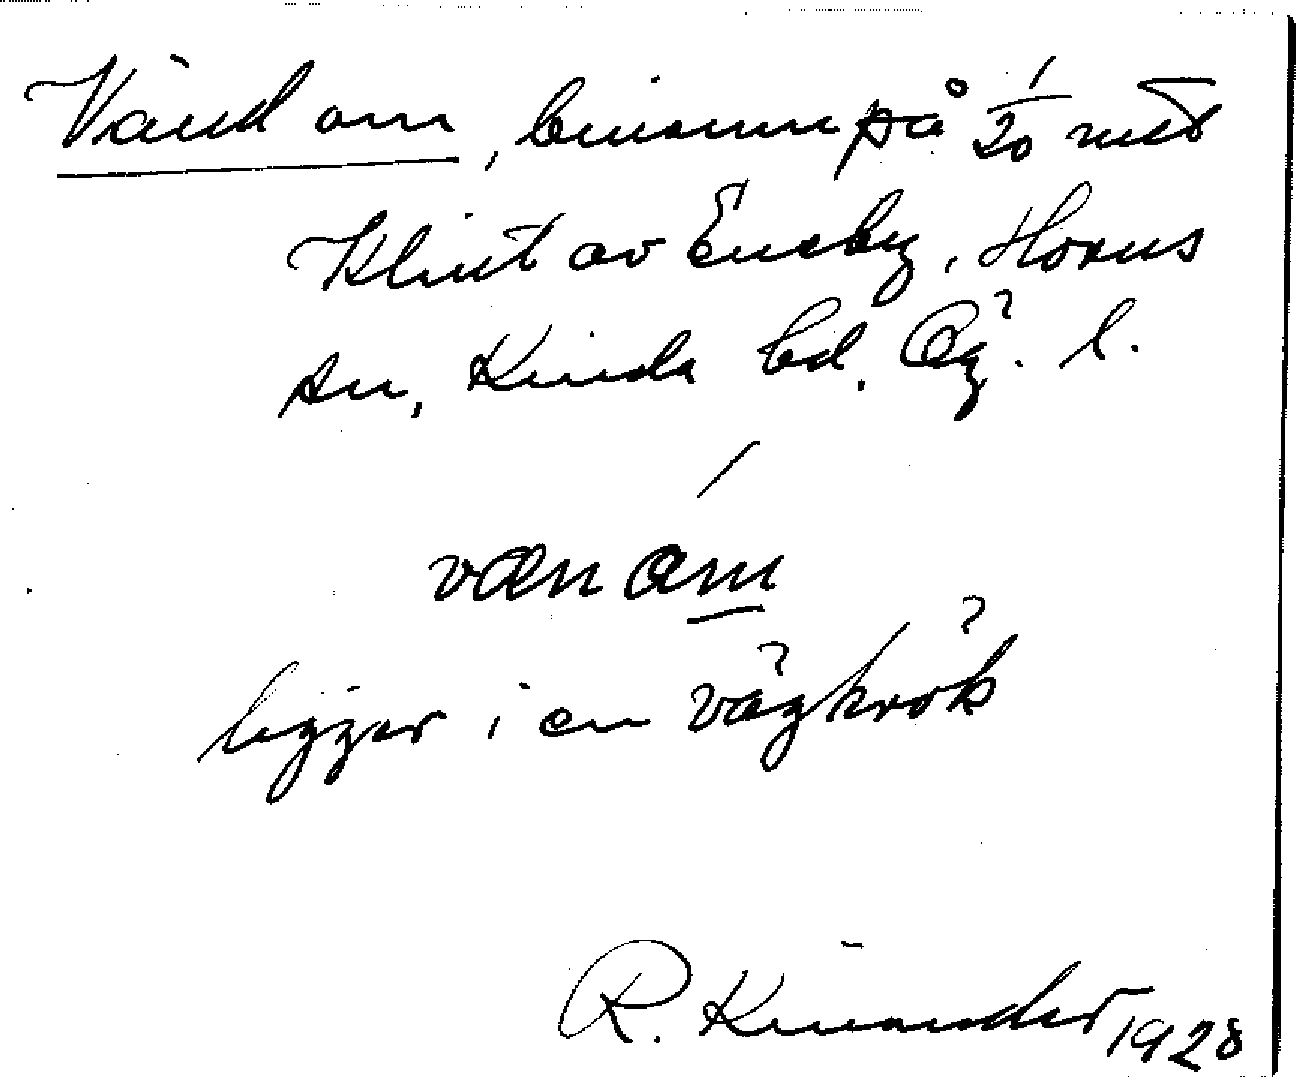 Vänd om, binamn på 1/20 mtl
Klint av Eneby, Horns
sn, Kinda hd. Ög. l.
væn om
ligger i en vägkrök
R. Kinander 1928